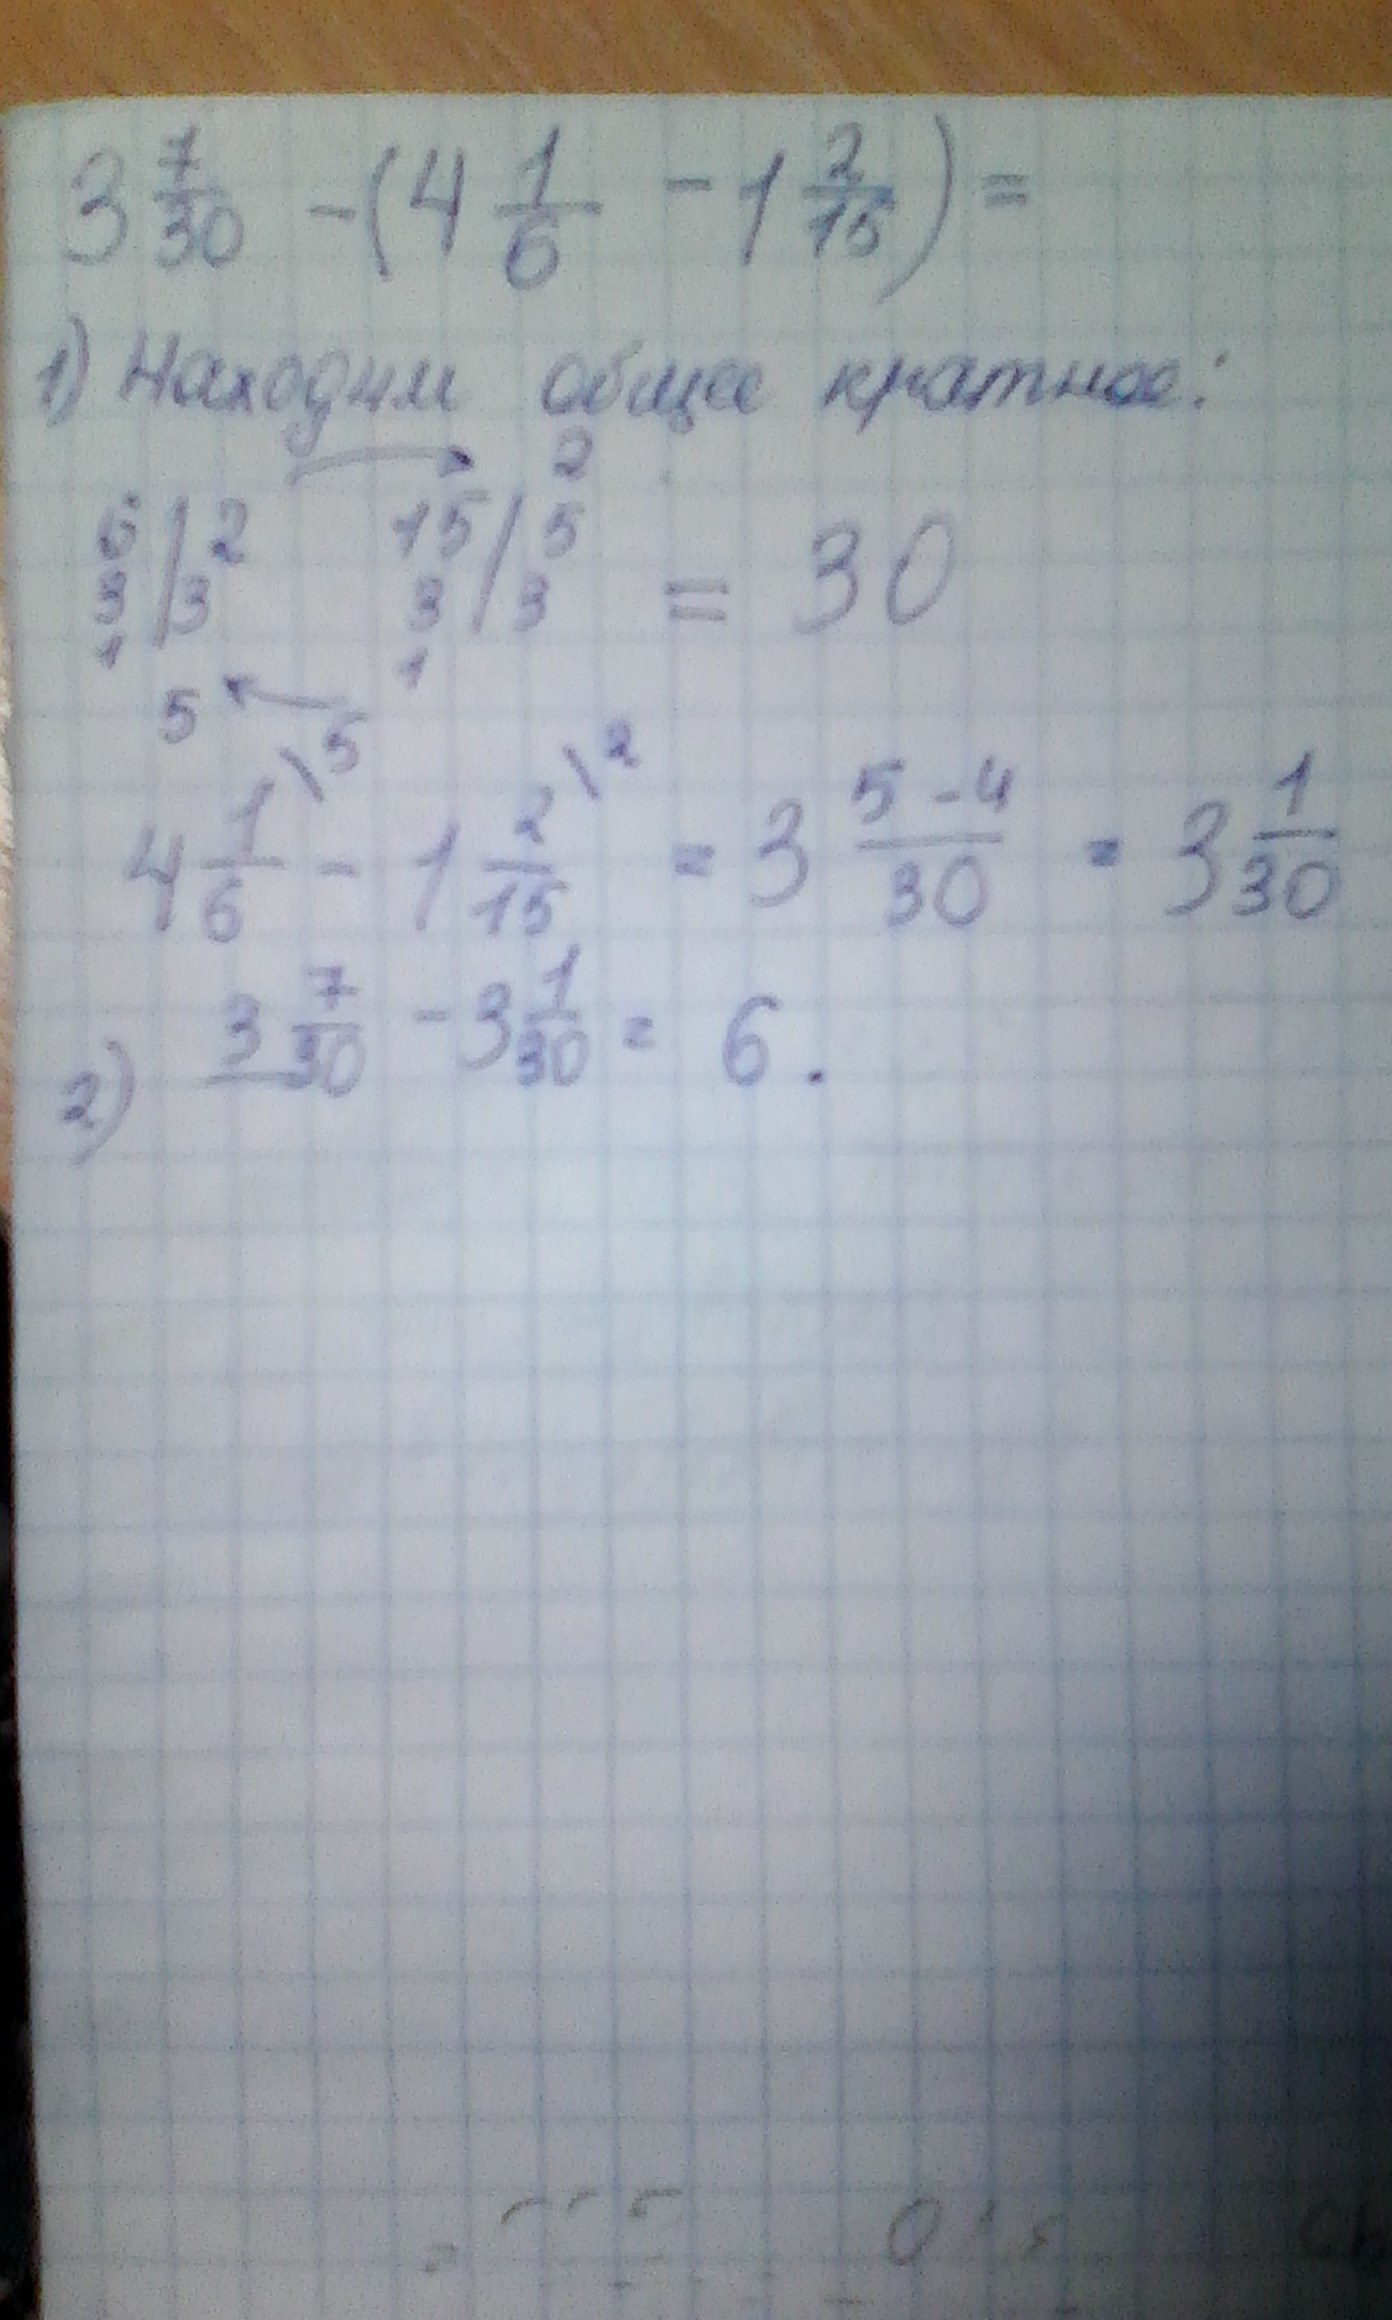 3 7/30 - (4 1/6 - 1 2/15) =
1) Находим общее кратное:
2
6 | 2 15 | 5
3 | 3 3 | 3 = 30
1 1
5 5
4 1/6 \5 - 1 2/15 \2 = 3 5-4/30 = 3 1/30
2) 3 7/30 - 3 1/30 = 6.